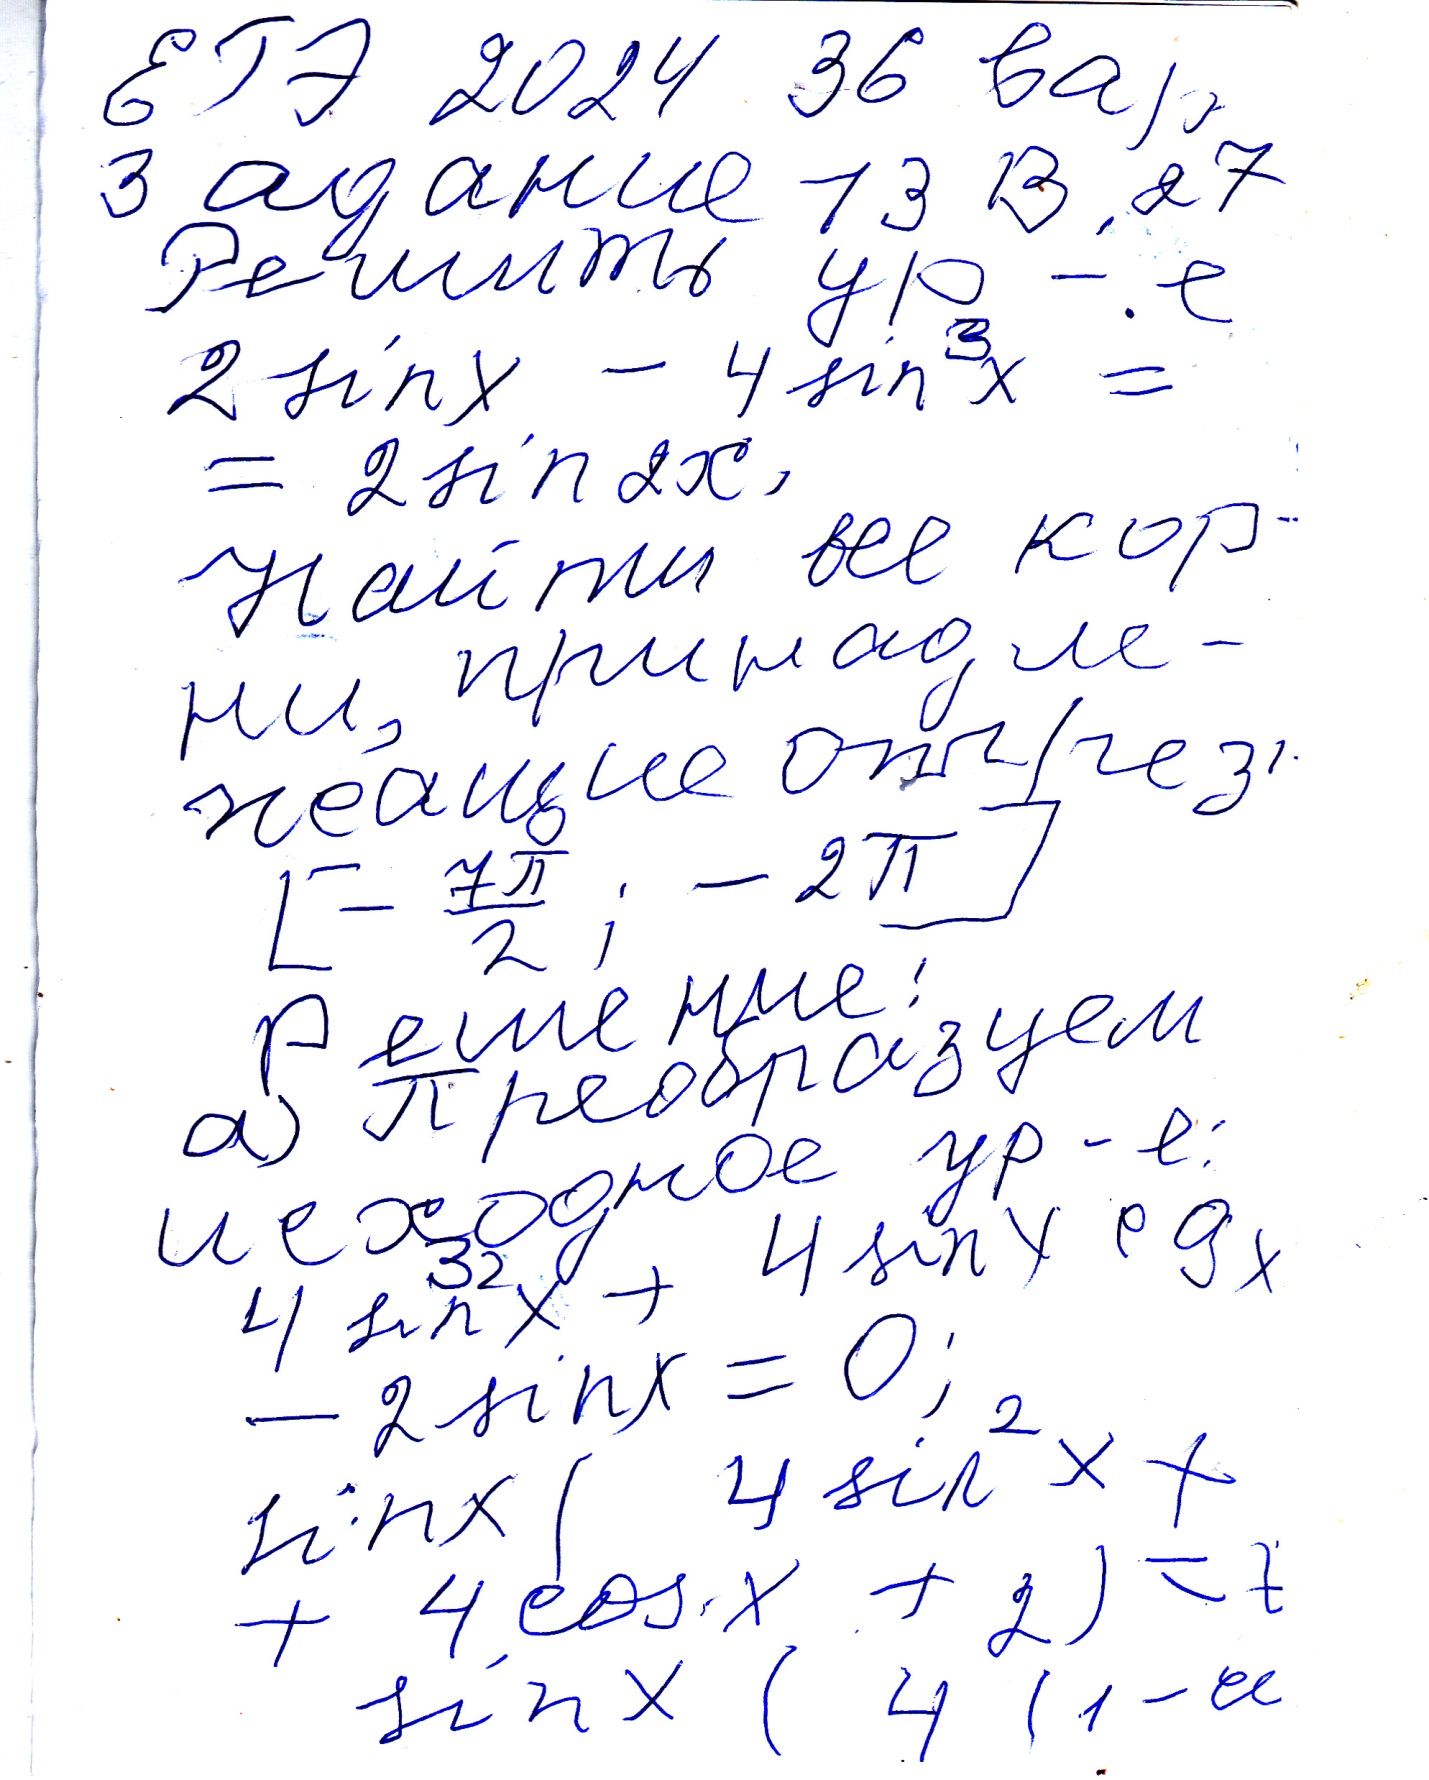 ЕГЭ 2024 36 вар,
Задание 13 В. 27
Решить ур-е
2 sin x - 4 sin³x =
= 2 sin 2x,
Найти все кор-
ни, принадле-
жащие отрез.
[-7π/2; -2π]
Решение:
а) Преобразуем
исходное ур-е:
4 sin³x + 4 sin x
- 2 sin x = 0;
sin x ( 4 sin²x +
+ 4 cos x + 2) =
sin x ( 4 (1 -